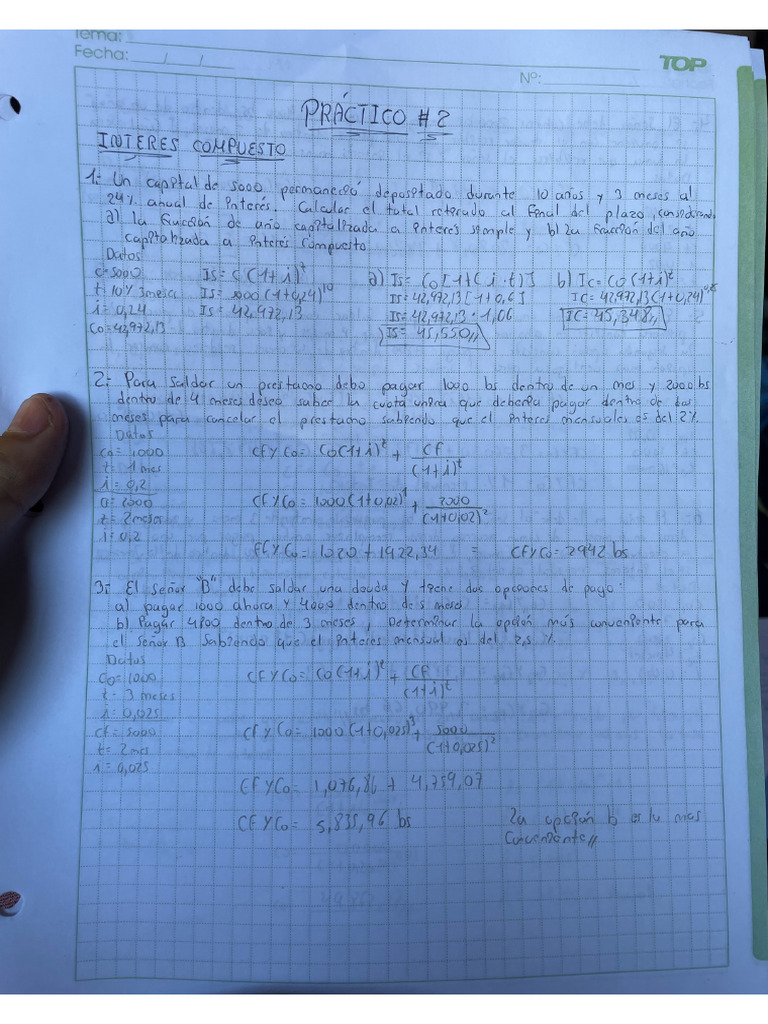 Tema:
Fecha: / /
TOP
Nº:
PRÁCTICO # 2
INTERES COMPUESTO
1: Un capital de 5000 permaneció depositado durante 10 años y 3 meses al
24% anual de interés. Calcular el total retirado al final del plazo, considerando
a) la fracción de año capitalizada a interés simple y b) la fracción del año
capitalizada a interés compuesto
Datos
C=5000 Is= C(1+i)^t a) Is= Co[1+(i.t)] b) Ic= Co(1+i)^t
t=10% 3meses Is= 5000(1+0,24)^10 Is= 42,972,13[1+0,6] Ic= 42,972,13(1+0,24)
i=0,24 Is= 42,972,13 Is= 42,972,13 . 1,06 Ic= 45,348,,
Co=42,972,13 Is= 45,550,,
2: Para saldar un prestamo debo pagar 1000 bs dentro de un mes y 2000 bs
dentro de 4 meses deseo saber la cuota unica que deberia pagar dentro de dos
meses para cancelar el prestamo sabiendo que el interes mensuales es del 2%.
Datos
Co = 1000 CF y Co= Co(1+i)^t + CF/(1+i)^t
t= 1 mes
i = 0,2
CF= 2000 CF y Co= 1000(1+0,02)^1 + 2000/(1+0,02)^2
t = 2 meses
i= 0,2
CF y Co= 1020 + 1922,34 = CF y Co= 2942 bs
3: El señor "B" debe saldar una deuda y tiene dos opciones de pago:
a) pagar 1000 ahora y 4000 dentro de 5 meses
b) Pagar 4800 dentro de 3 meses, Determinar la opción más conveniente para
el señor B Sabiendo que el interes mensual es del 2,5 %.
Datos
Co= 1000 CF y Co= Co(1+i)^t + CF/(1+i)^t
t= 3 meses
i= 0,025
CF= 5000 CF y Co= 1000(1+0,025)^3 + 5000/(1+0,025)^2
t= 2 mes
i= 0,025
CF y Co= 1,076,86 + 4,759,07
CF y Co= 5,835,96 bs La opción b es la mas
Conveniente,,